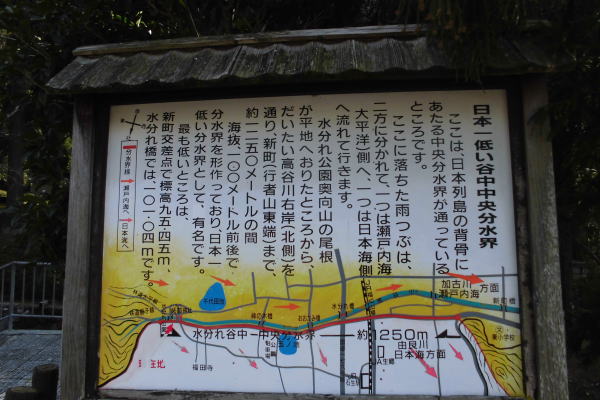 日本一低い谷中中央分水界
ここは、日本列島の背骨に
あたる中央分水界が通っている
ところです。
ここに落ちた雨つぶは、
二方に分かれて、一つは瀬戸内海
太平洋側へ、一つは日本海側
へ流れて行きます。
水分れ公園奥向山の尾根
が平地へおりたところから、
だいたい高谷川右岸(北側)を
通り、新町(行者山東端)まで、
約一二五〇メートルの間
海抜一〇〇メートル前後で
分水界を形作っており、日本一
低い分水界として、有名です。
最も低いところは、
新町交差点で標高九五・四五m、
水分れ橋では一〇一・〇四mです。
分水界線
瀬戸内海へ
日本海へ
加古川
瀬戸内海
方面
水分れ橋
水分れ谷中一中央分水界
約1250m
由良川
日本海方面
福田寺
東小学校